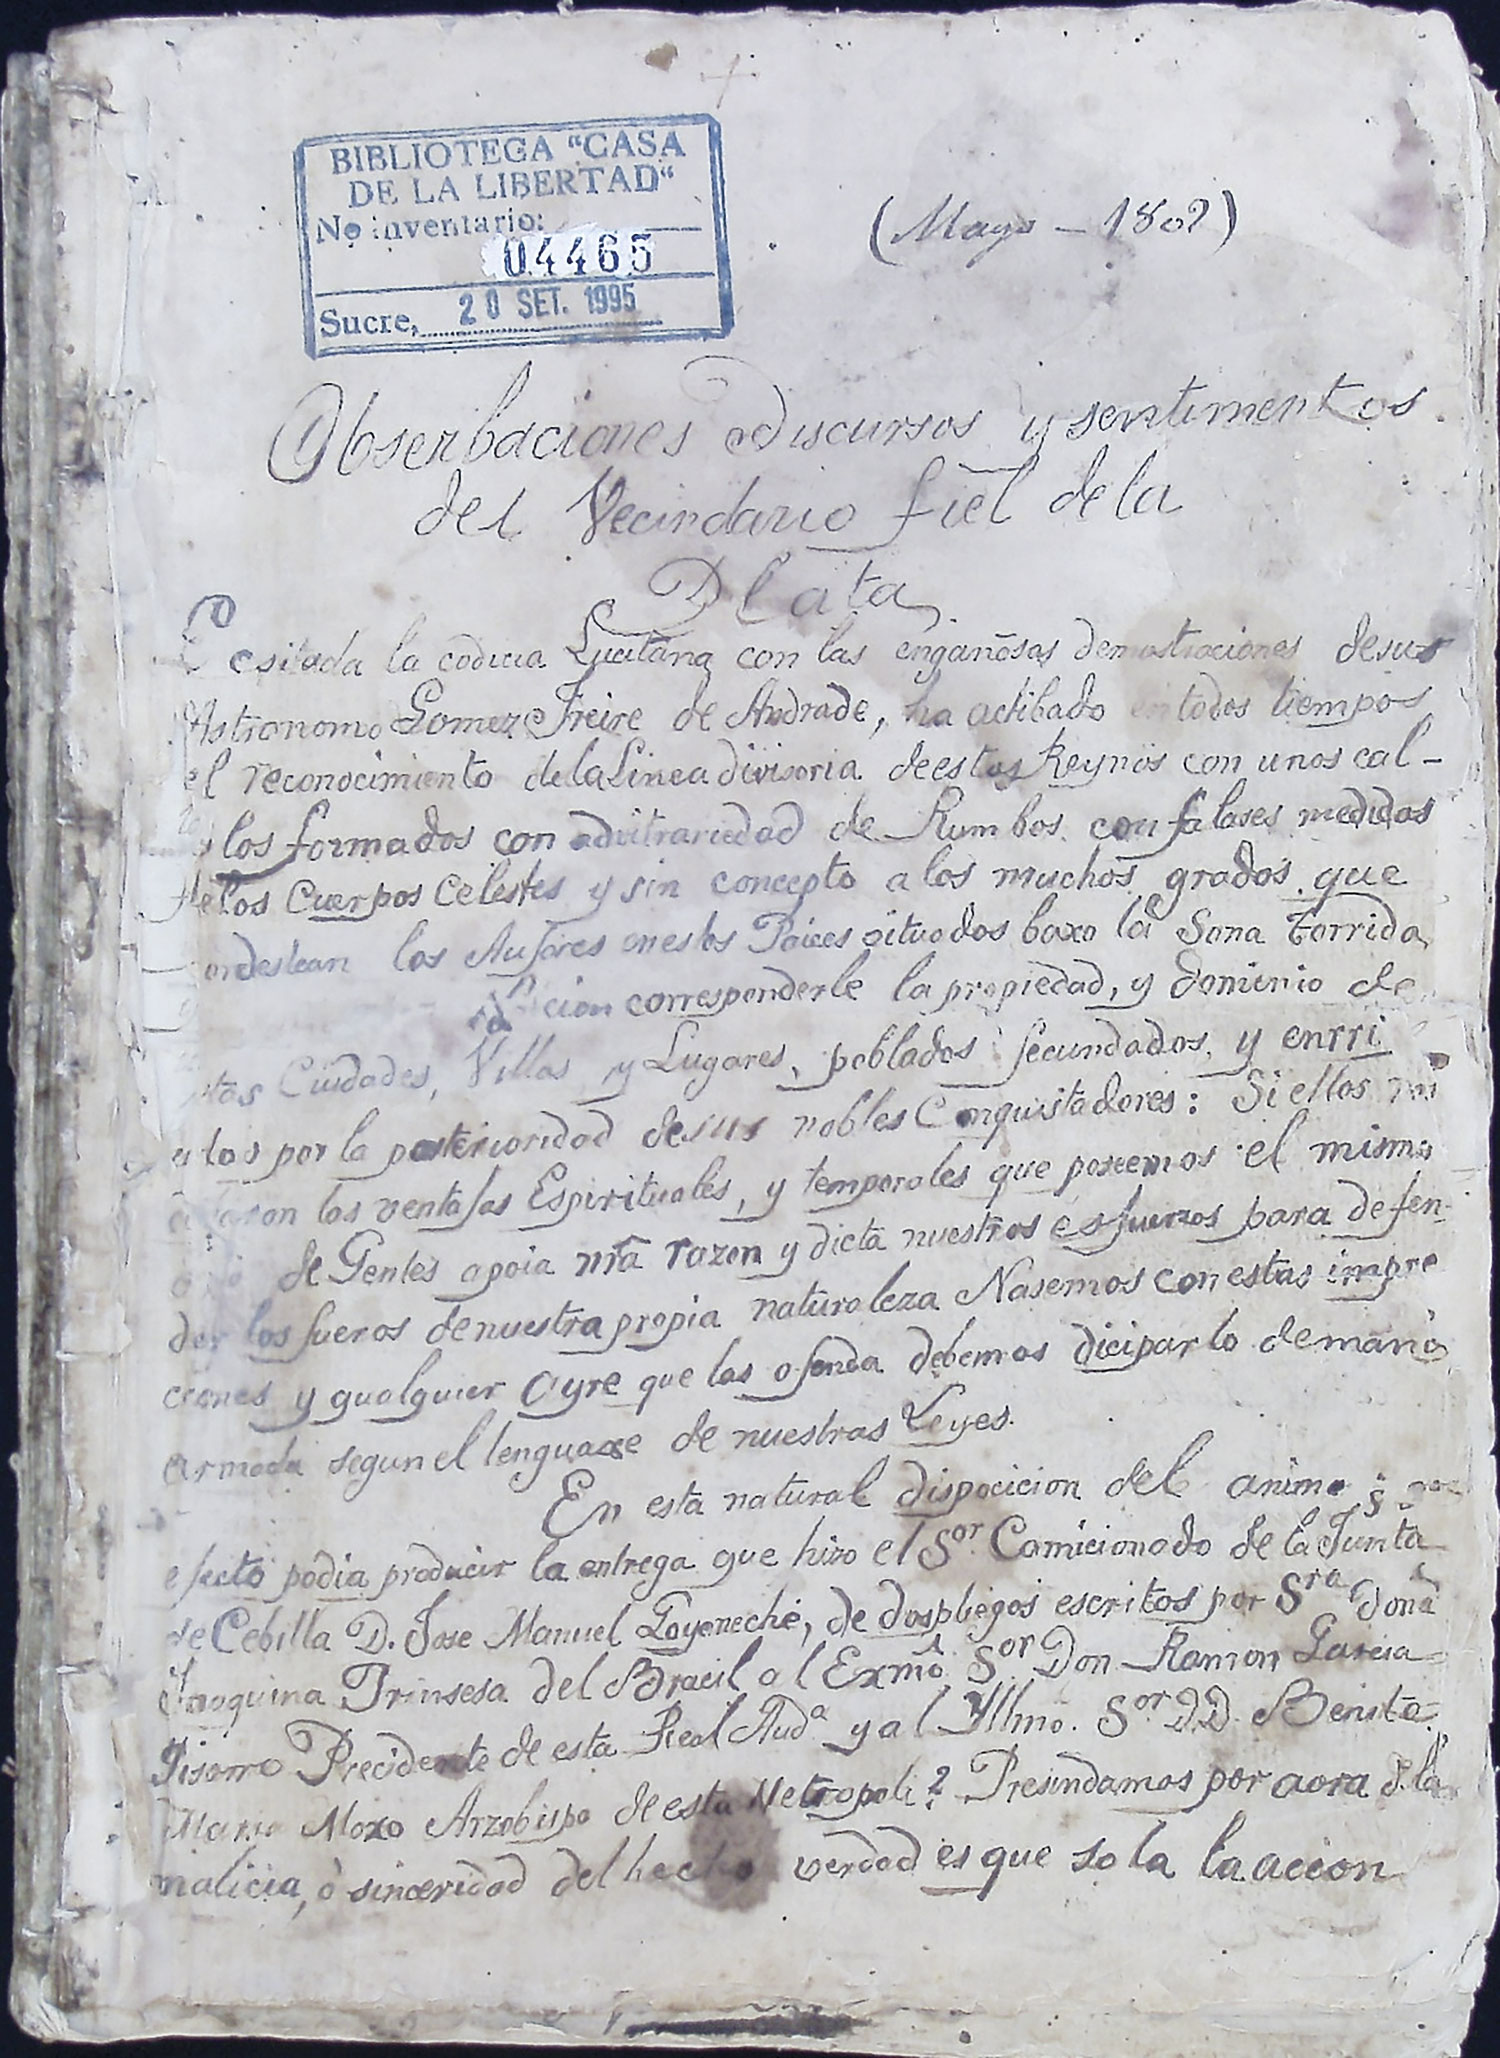 BIBLIOTECA "CASA
DE LA LIBERTAD"
No inventario:
04465
Sucre, 20 SET. 1995
(Mayo - 1809)
Obserbaciones Discursos y sentimentos
del Vecindario fiel de la
Plata
Ecsitada la codicia Lucitana con las engañosas demostraciones de sus
Astronomo Gomez Freire de Andrade, ha actibado en todos tiempos
el reconocimiento de la Linea divisoria de estos Reynos con unos cal-
los formados con advitrariedad de Rumbos con falases medidas
de los Cuerpos Celestes y sin concepto a los muchos grados que
ordestean los en estos Paices situados baxo la Sona torrida
cion corresponderle la propiedad, y dominio de
tas Ciudades, Villas y Lugares, poblados fecundados y enrri
por la posterioridad de sus nobles Conquistadores: Si ellos
los ventajas Espirituales, y temporales que poseemos el mismo
de Gentes apoia nrã razon y dicta nuestros esfuerzos para defen-
der los fueros de nuestra propia naturaleza Nasemos con estas impre
ciones y qualquier ayre que las ofenda debemos diciparlo de mano
armada segun el lenguaxe de nuestras Leyes.
En esta natural dispocicion del animo
efecto podia producir la entrega que hizo el Sor Comicionado de la Junta
de Cebilla D. Jose Manuel Goyeneche, de dos pliegos escritos por Sra Doña
Joaquina Prinsesa del Bracil al Exmo. Sor Don Ramon Garcia
Pisarro Precidente de esta Real Auda y al Yllmo. Sor D.D. Benito
Maria Moxo Arzobispo de esta Metropoli? Presindamos por aora d.la
malicia, ò sinceridad del hecho verdad es que sola la accion